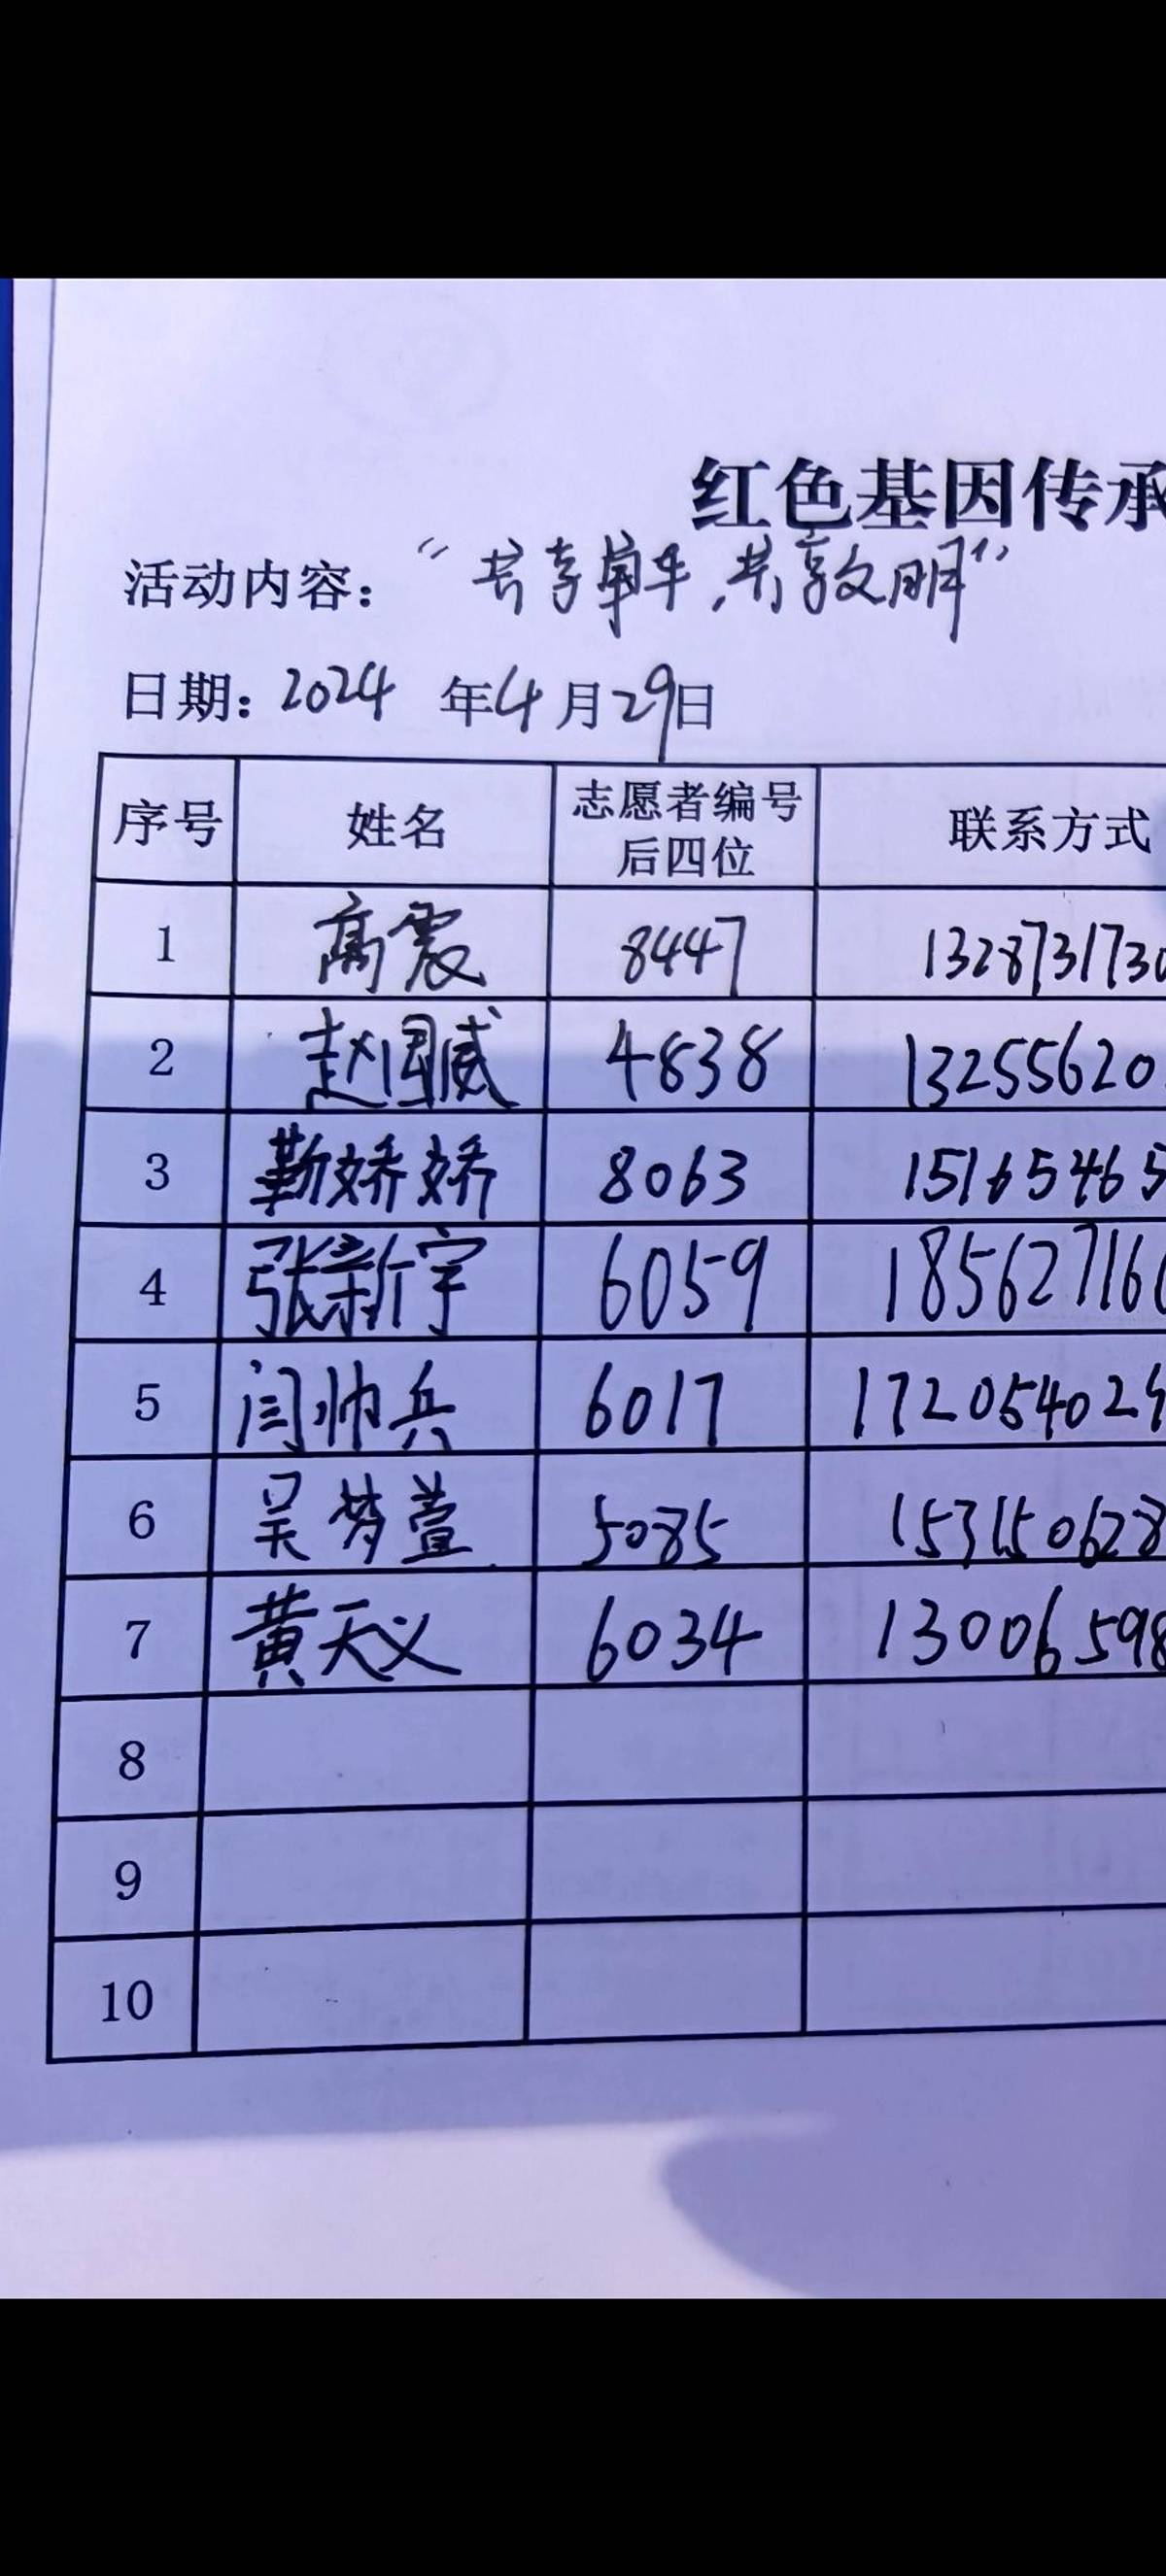 红色基因传承
活动内容：“共享单车，共享文明”
日期：2024年4月29日
序号 姓名 志愿者编号后四位 联系方式
1 高震 8447 1328731730
2 赵国威 4838 13255620
3 靳娇娇 8063 15165465
4 张新宇 6059 185627166
5 闫帅兵 6017 172054024
6 吴梦萱 5085 153150628
7 黄天义 6034 13006598
8
9
10